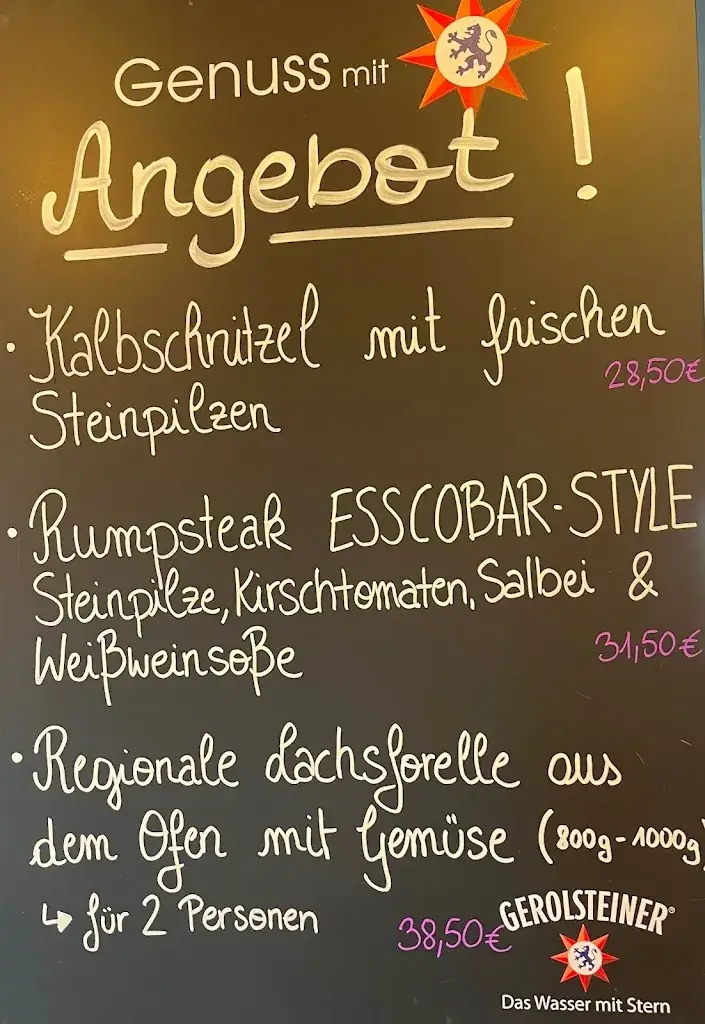 Genuss mit
Angebot!
• Kalbschnitzel mit frischen
28,50€
Steinpilzen
• Rumpsteak ESSCOBAR-STYLE
Steinpilze, Kirschtomaten, Salbei &
Weißweinsoße 31,50€
• Regionale Lachsforelle aus
dem Ofen mit Gemüse (800g-1000g)
↳ für 2 Personen 38,50€
GEROLSTEINER®
Das Wasser mit Stern